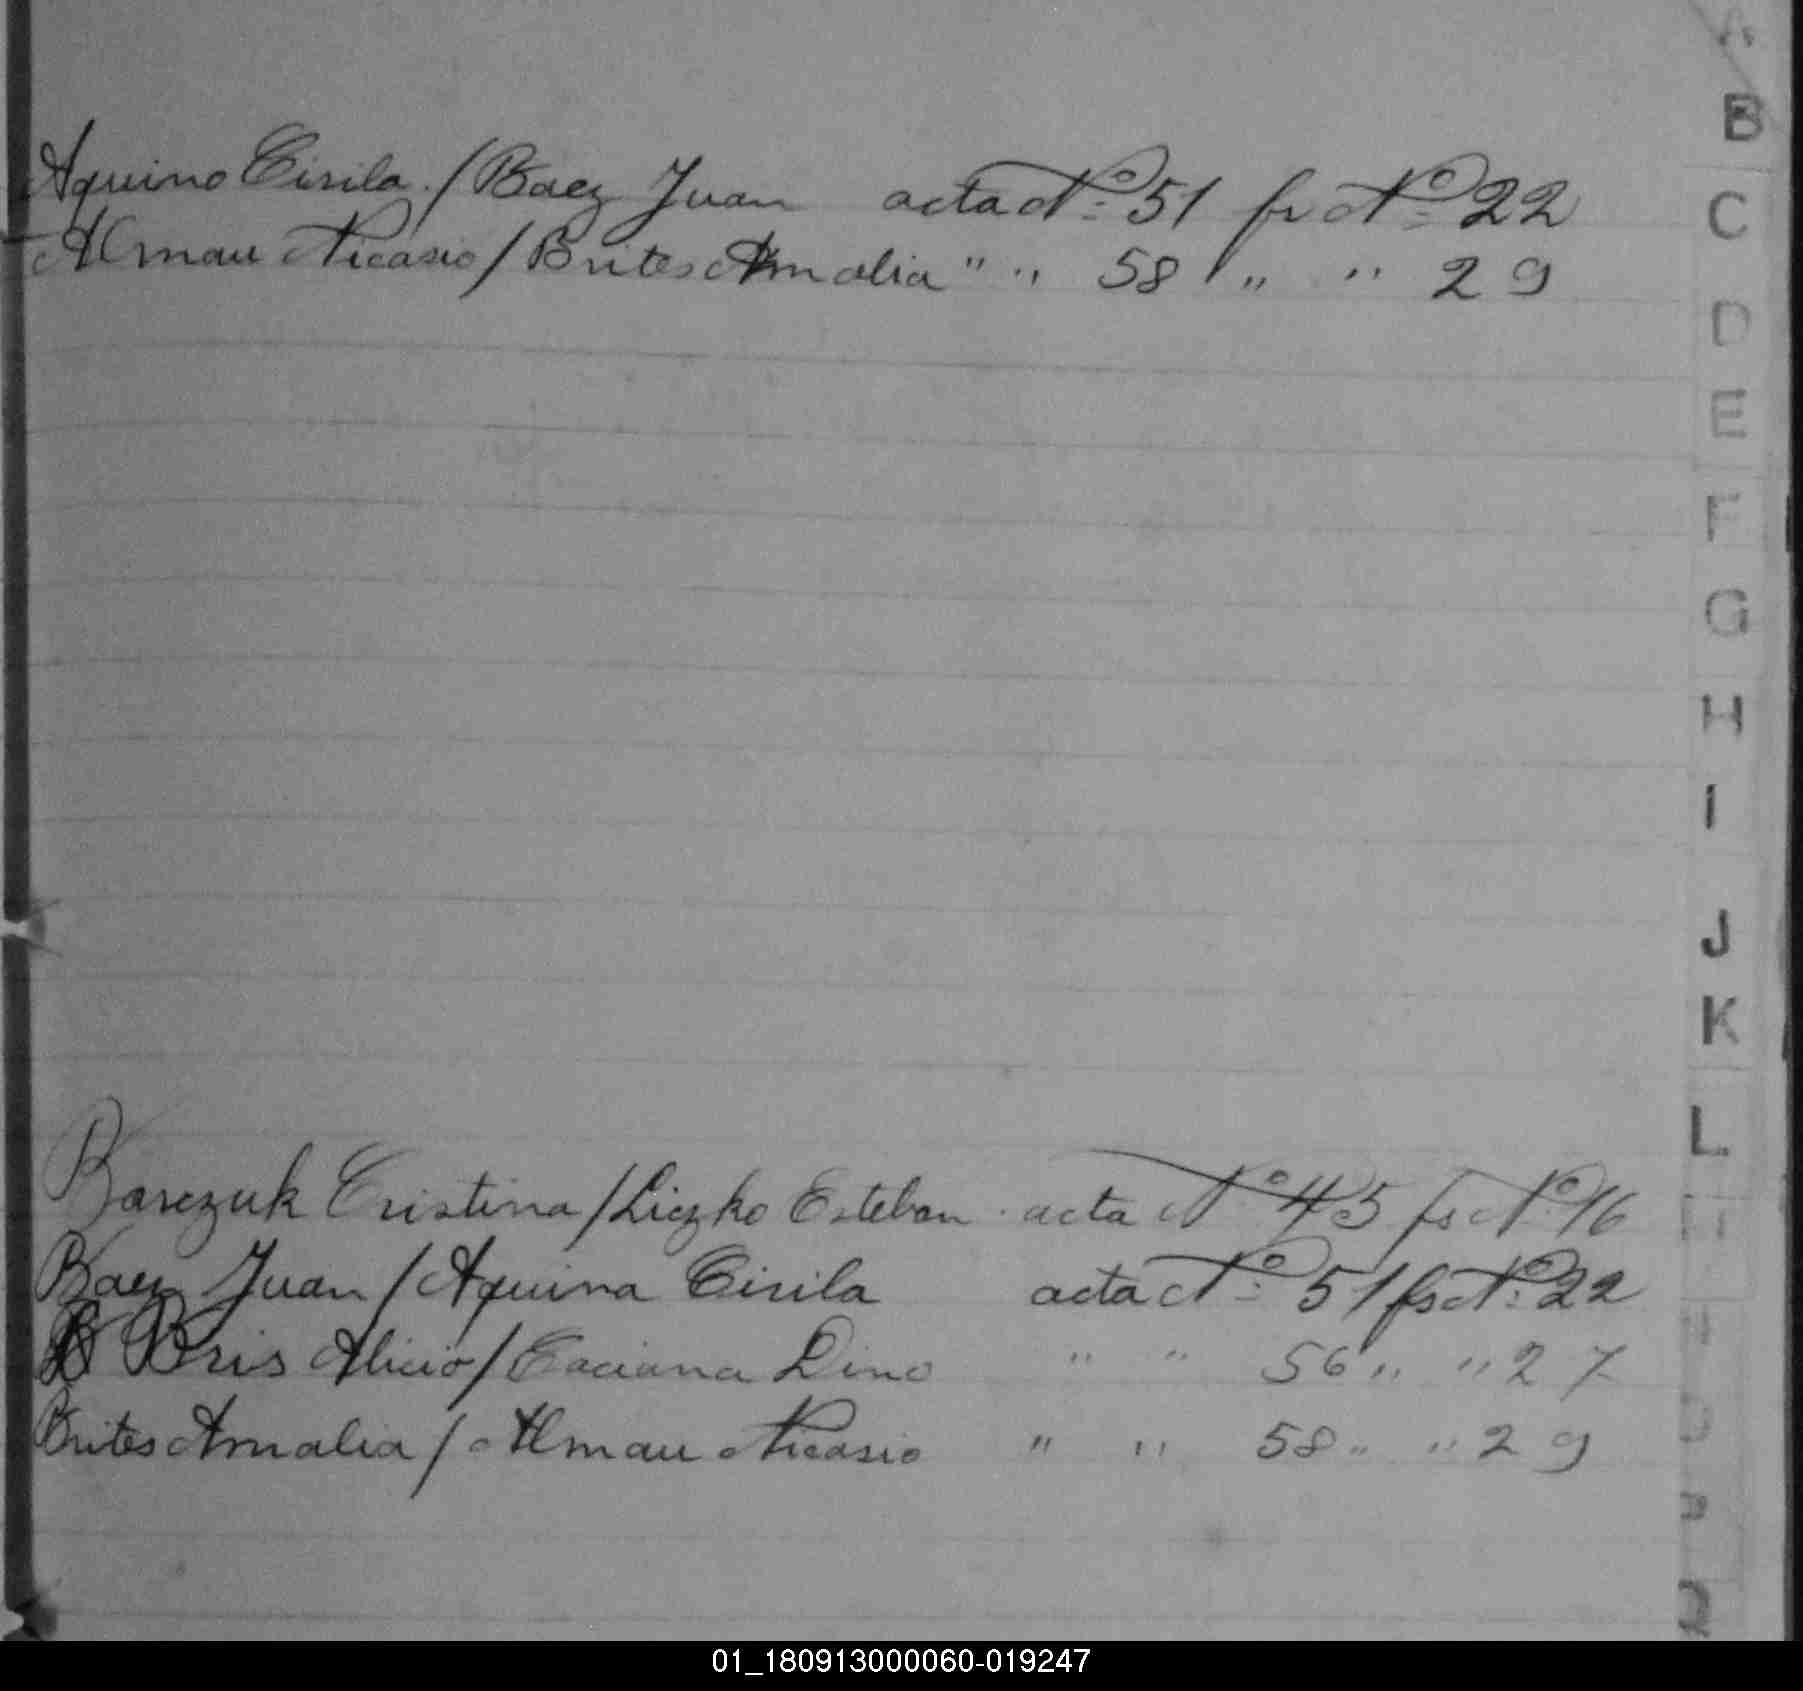 Aquino Cirila / Baez Juan acta Nº 51 fs Nº 22
Almau Nicasio / Brites Amalia " " 58 " " 29
Barczuk Cristina / Liczko Esteban acta Nº 45 fs Nº 16
Baez Juan / Aquina Cirila acta Nº 51 fs Nº 22
Bris Alicio / Caciana Dino " " 56 " " 27
Brites Amalia / Almau Nicasio " " 58 " " 29
B
C
D
E
F
G
H
I
J
K
L
01_180913000060-019247